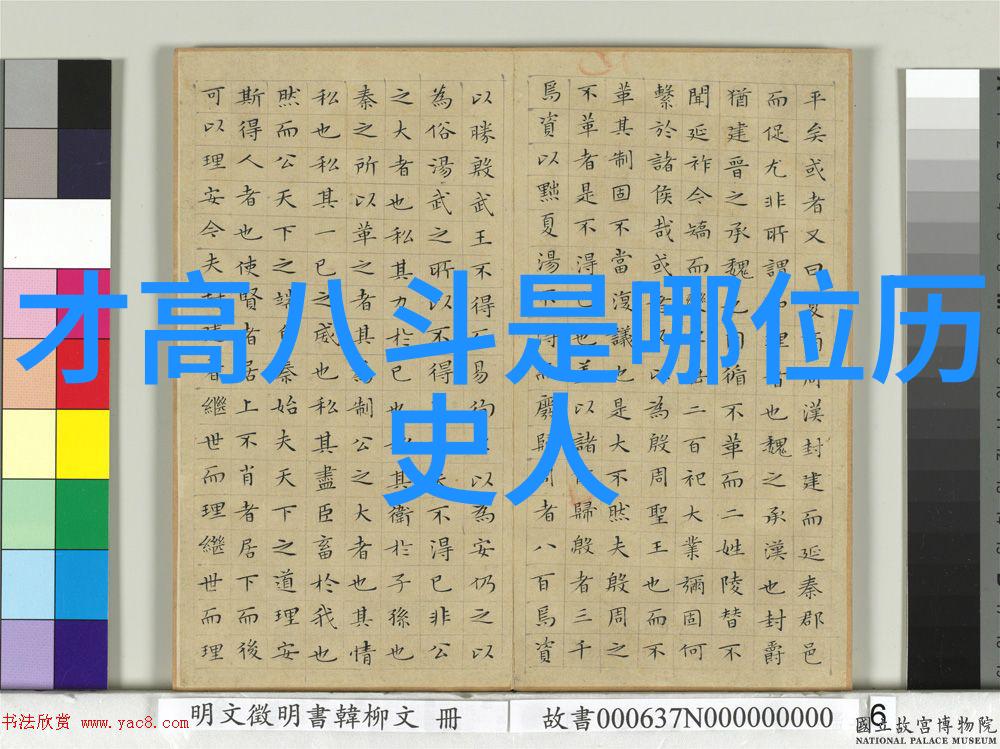 才高八斗是哪位历
史人
平矣或者又曰夏商周漢封建而延秦郡邑
而促尤非所謂知理者也魏之承漢也封爵
猶建晉之承魏也因循不革而二姓陵替不
聞延祚今矯而變之垂二百祀大業彌固何
繫於諸侯哉或者又以為殷周聖王也而不
革其制固不當復議也是大不然夫殷周之
不革者是不得已也蓋以諸侯歸殷者三千
焉資以黜夏湯不得而廢歸周者八百焉資
以勝殷武王不得而易徇之以為安仍之以
為俗湯武之所以不得已也夫不得已非公
之大者也私其力於己也私其衛於子孫也
秦之所以革之者其為制公之大者也其情
私也私其一己之威也私其盡臣畜於我也
然而公天下之端自秦始夫天下之道理安
斯得人者也使賢者居上不肖者居下而後
可以理安今夫封建者繼世而理繼世而理
明文徵明書韓柳文 冊
故書000637N000000000
6
國立故宮博物院
NATIONAL PALACE MUSEUM
书法欣赏 www.yac8.com